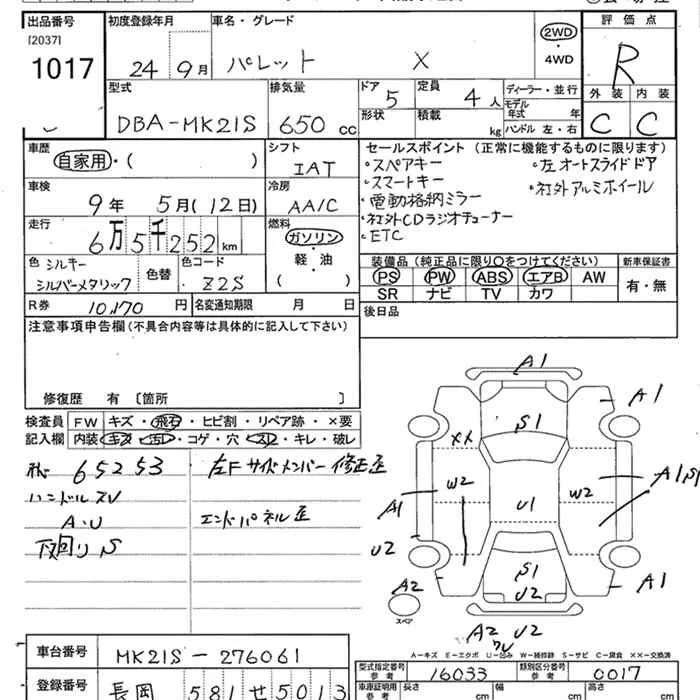 出品番号 初度登録年月 車名・グレード 評価点
[2037]
1017 24 9月 パレット X 2WD ・ 4WD R
型式 排気量 ドア 定員 ディーラー・並行 外装 内装
DBA-MK21S 650cc 5 4人 モデル年式 年 C C
形状 積載 kg ハンドル 左・右
車歴 シフト セールスポイント (正常に機能するものに限ります)
自家用・( ) IAT ・スペアキー ・左オートスライドドア
車検 冷房 ・スマートキー ・社外アルミホイール
9年 5月(12日) AA/C ・電動格納ミラー
走行 燃料 ・社外CDラジオチューナー
6万5千252km ガソリン ・ETC
色 シルキーシルバーメタリック 色替 色コード Z2S 軽・油 ( )
装備品 (純正品に限り○をつけてください) 新車保証書
PS PW ABS エアB AW 有・無
SR ナビ TV カワ
R券 10,170円 名変通知期限 月 日 後日品
注意事項申告欄 (不具合内容等は具体的に記入して下さい)
修復歴 有 〔箇所 〕
検査員記入欄 FW キズ・飛石・ヒビ割・リペア跡・×要
内装 キズ・汚レ・コゲ・穴・スレ・キレ・破レ
65253 左Fサイドメンバー修正歪
ハンドルスレ
A・U エンドパネル歪
下回りS
A1
A1
S1
XX
W2 W2
A1S1
A1
U1
U2
S1
U2
A2
A1
スペア
A2 U2
W
A-キズ E-エクボ U-凹み W-補修跡 S-サビ C-腐食 XX-交換済
車台番号 MK21S-276061
型式指定番号 参考 16033 類別区分番号 参考 0017
登録番号 長岡 581せ5013
車庫証明用 参考 長さ cm 幅 cm 高さ cm